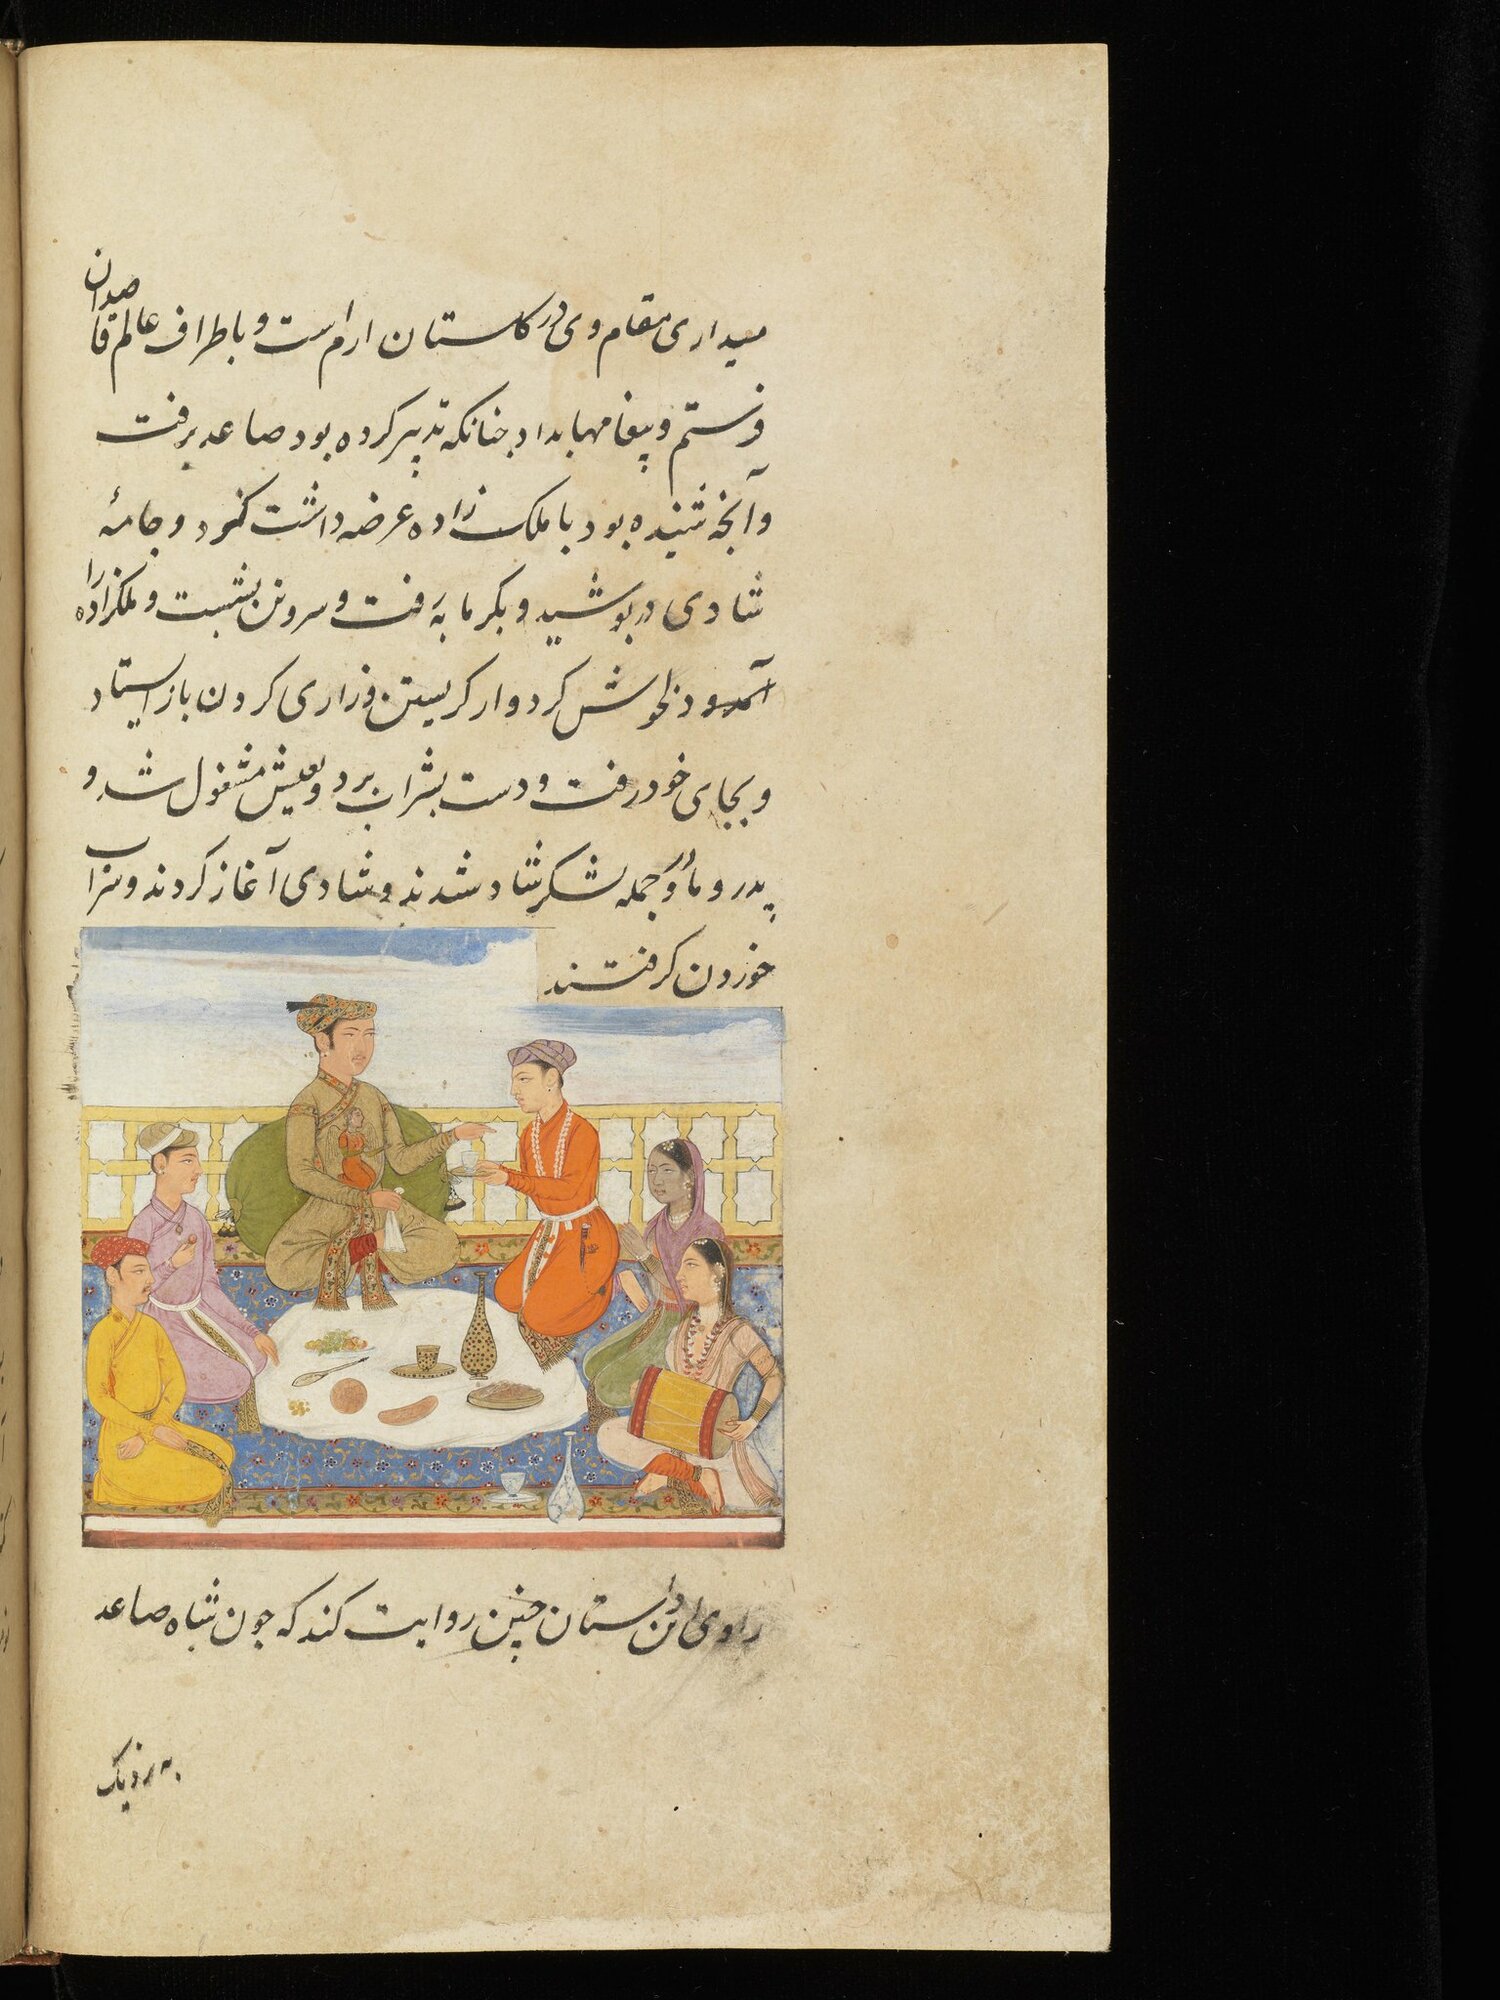 میداری مقام وی در کلستان ارم است و باطراف عالم قاصدان
فرستم و پیغامها بداد جنانکه تدبیر کرده بود صاعد برفت
و آنجه شنیده بود با ملک زاده عرضه داشت کرد و جامهٔ
شادی در بوشید و بکرمابه رفت و بیرون بنشست و ملکزاده را
آمد و دلخوش کرد و از کریستن و زاری کردن باز ایستاد
و بجای خود رفت و دست بشراب برد و بعیش مشغول شد و
پدر و مادر و جمله لشکر شاد شدند و شادی آغاز کردند و شراب
خوردن کرفتند
راوی این داستان چنین روایت کند که جون شاه صاعد
نزدیک